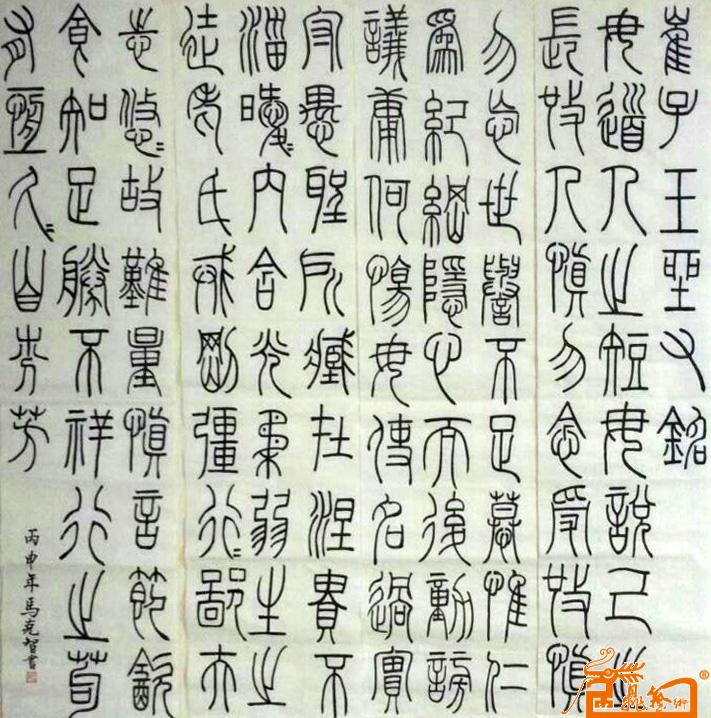 崔子玉座右銘
毋道人之短毋說己之
長施人慎勿念受施慎
勿忘世譽不足慕惟仁
為紀綱隱心而後動謗
議庸何傷毋使名過實
守愚聖所臧在涅貴不
淄曖〻內含光柔弱生之
徒老氏戒剛彊行〻鄙夫
志悠〻故難量慎言節飲
食知足勝不祥行之苟
有恆久〻自芬芳
丙申年馬克智書